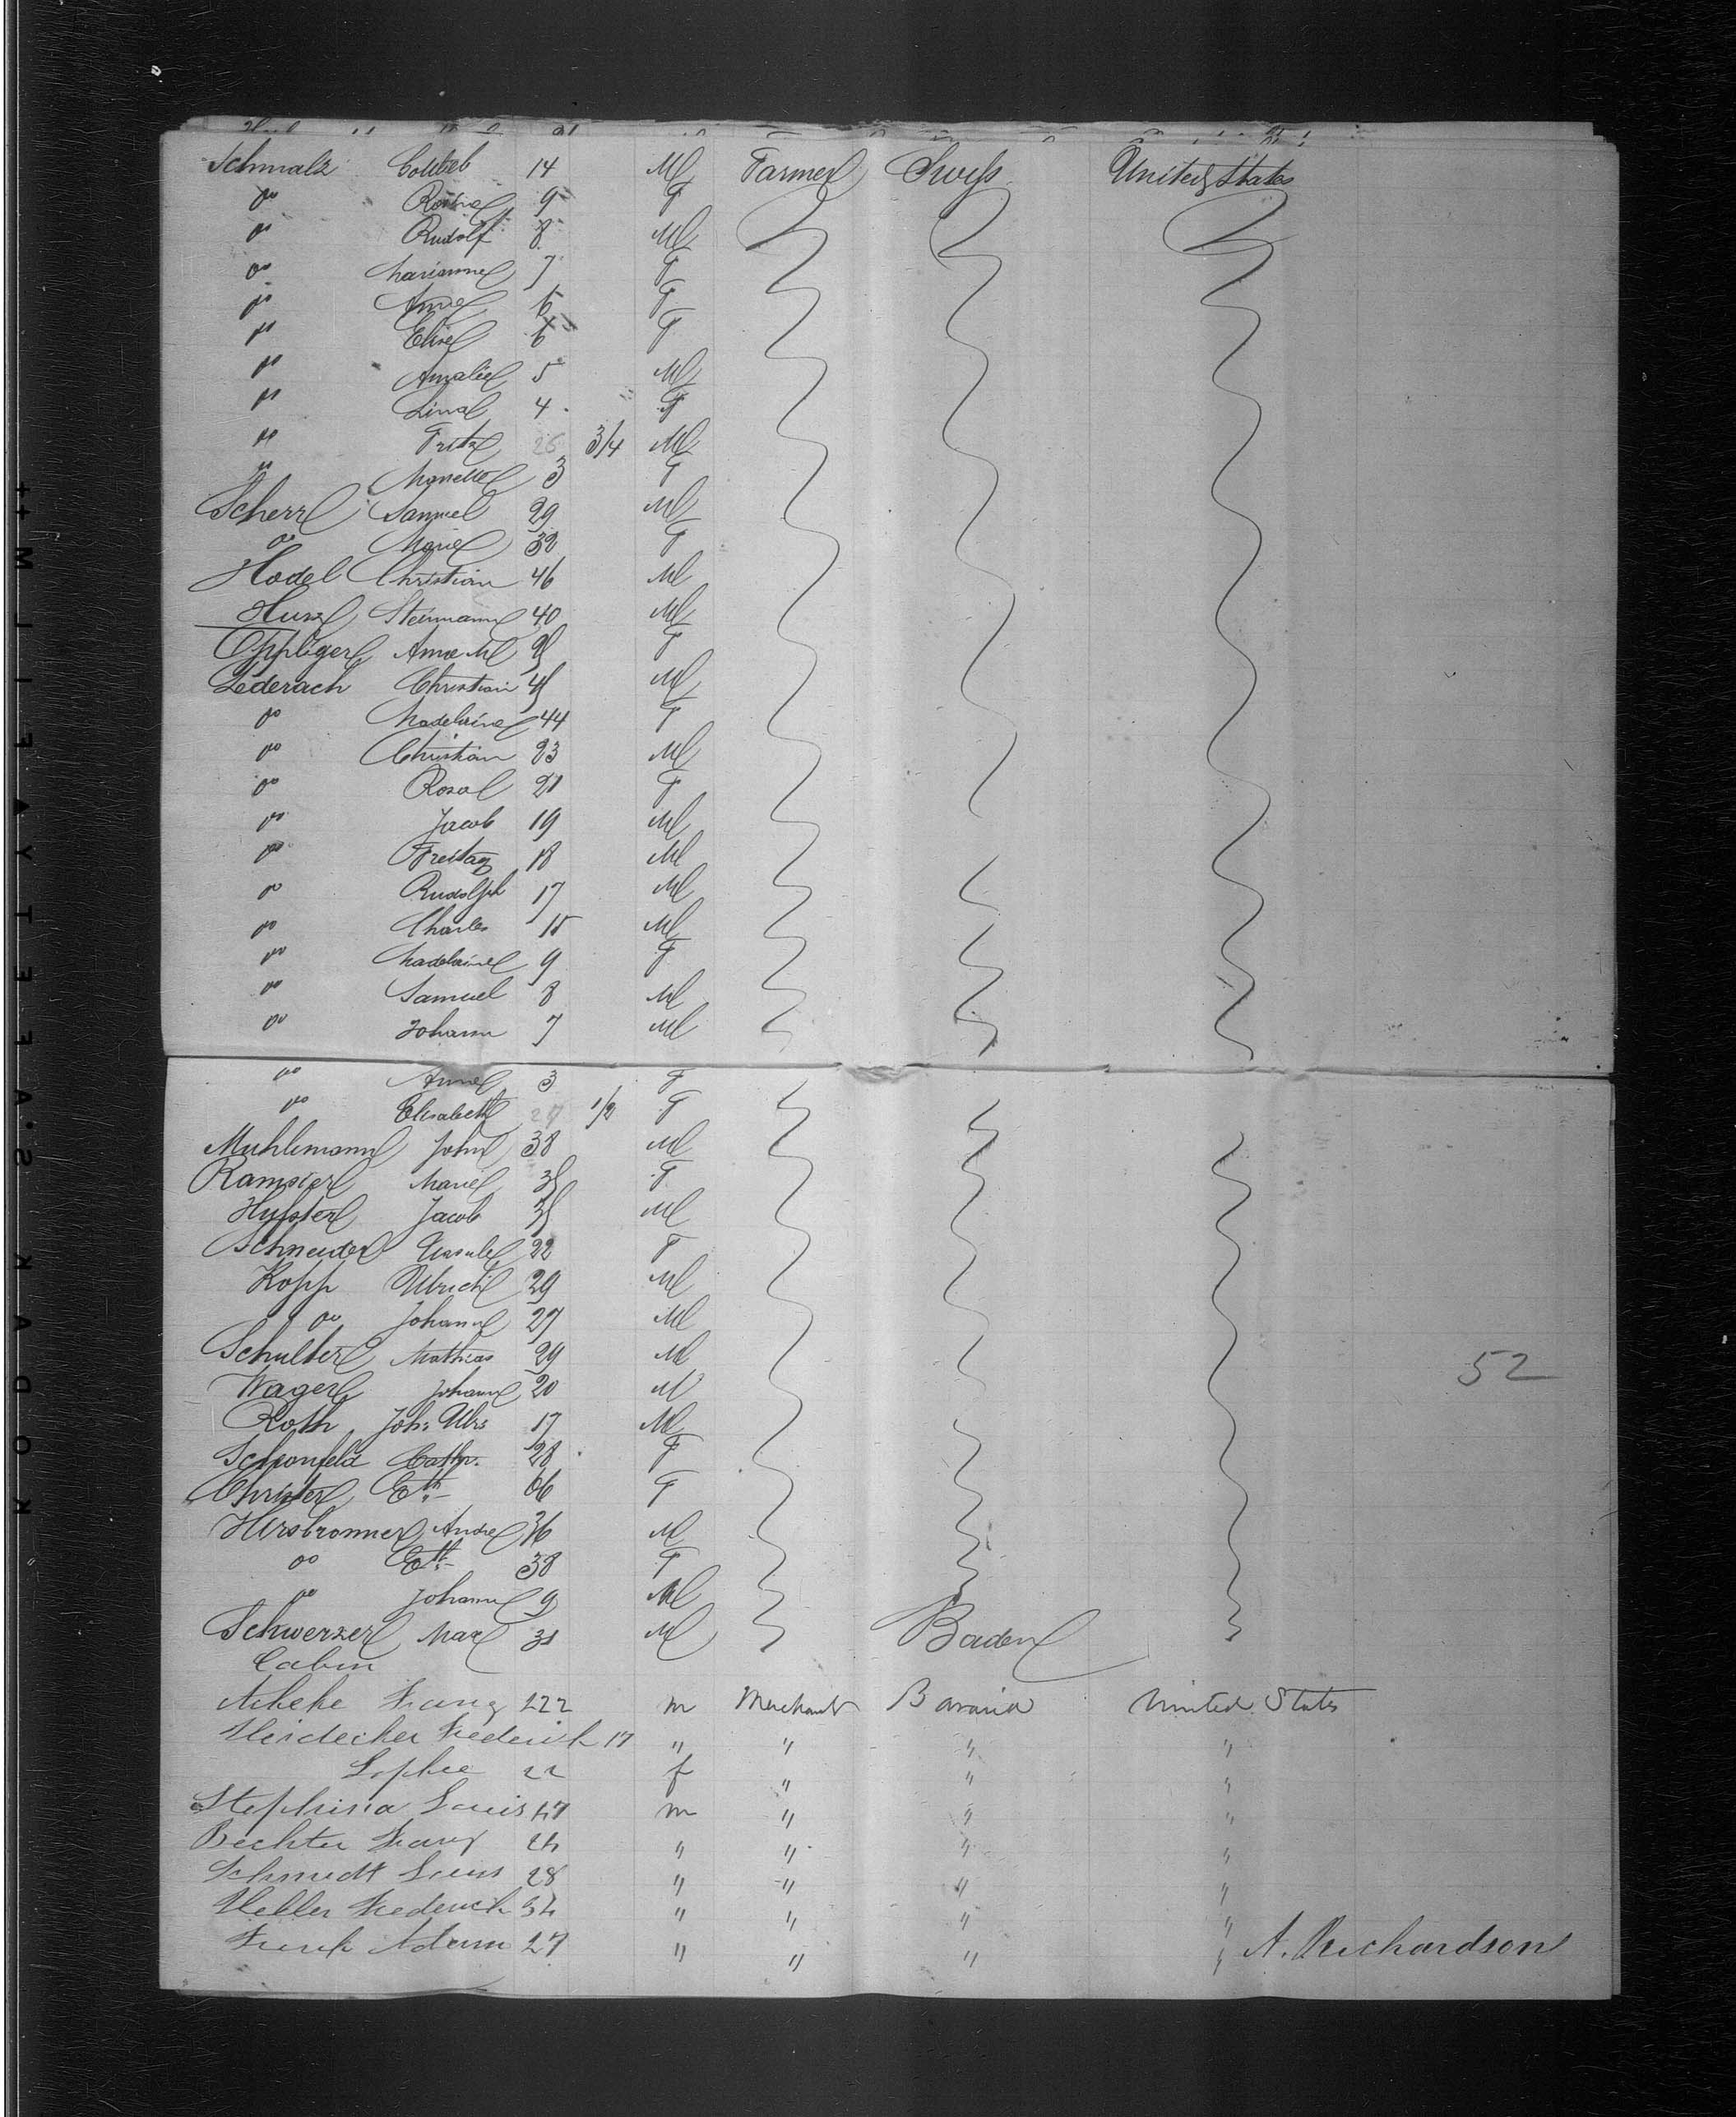 Schmalz Gottlieb 14 M Farmer Swiss United States
" Rosina 9 F
" Rudolf 8 M
" Marianne 7 F
" Anna 6 F
" Elise 6 F
" Amalie 5 M
" Lina 4 F
" Fritz 3/4 M
" Nanette 3 F
Scherr Samuel 29 M
" Marie 32 F
Hodel Christian 46 M
Steinmann 40 M
Oppliger Anna M F
Lederach Christian M
" Madelaine 44 F
" Christian 23 M
" Rosa 21 F
" Jacob 19 M
" Freitag 18 M
" Rudolph 17 M
" Charles 15 M
" Madelaine 9 F
" Samuel 8 M
" Johann 7 M
" Anna 3 F
" Elisabeth 1/2 F
Muhlemann John 38 M
Ramseier Marie F
Jacob M
Schneider Ursule 22 F
Kopp Ulrich 29 M
" Johann 27 M
Schulter Mathias 29 M
52
Wager Johann 20 M
Roth Joh: Ulrs 17 M
Schonfeld Cath. 28 F
Christer Eth F
Hirsbronner Andre 36 M
" Eth 38 F
" Johann 9 M
Schwerzer Max 31 M Baden
Cabin
Franz 22 m Merchant Bavaria United States
Heidecker Frederick 17 " " " "
Sophie 22 f " " "
Louis 47 m " " "
Bechter Franz 24 " " " "
Schmidt Louis 28 " " " "
Heller Frederick 34 " " " "
Frank Adam 27 " " " " A. Richardson
KODAK SAFETY FILM